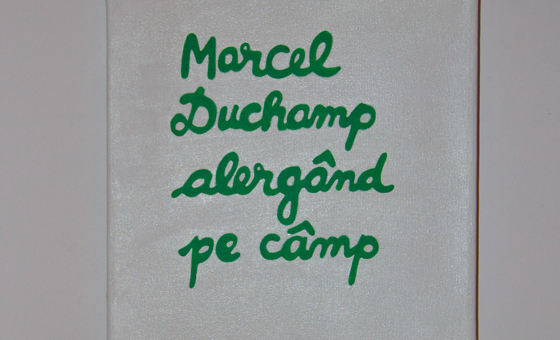 Marcel
Duchamp
alergând
pe câmp